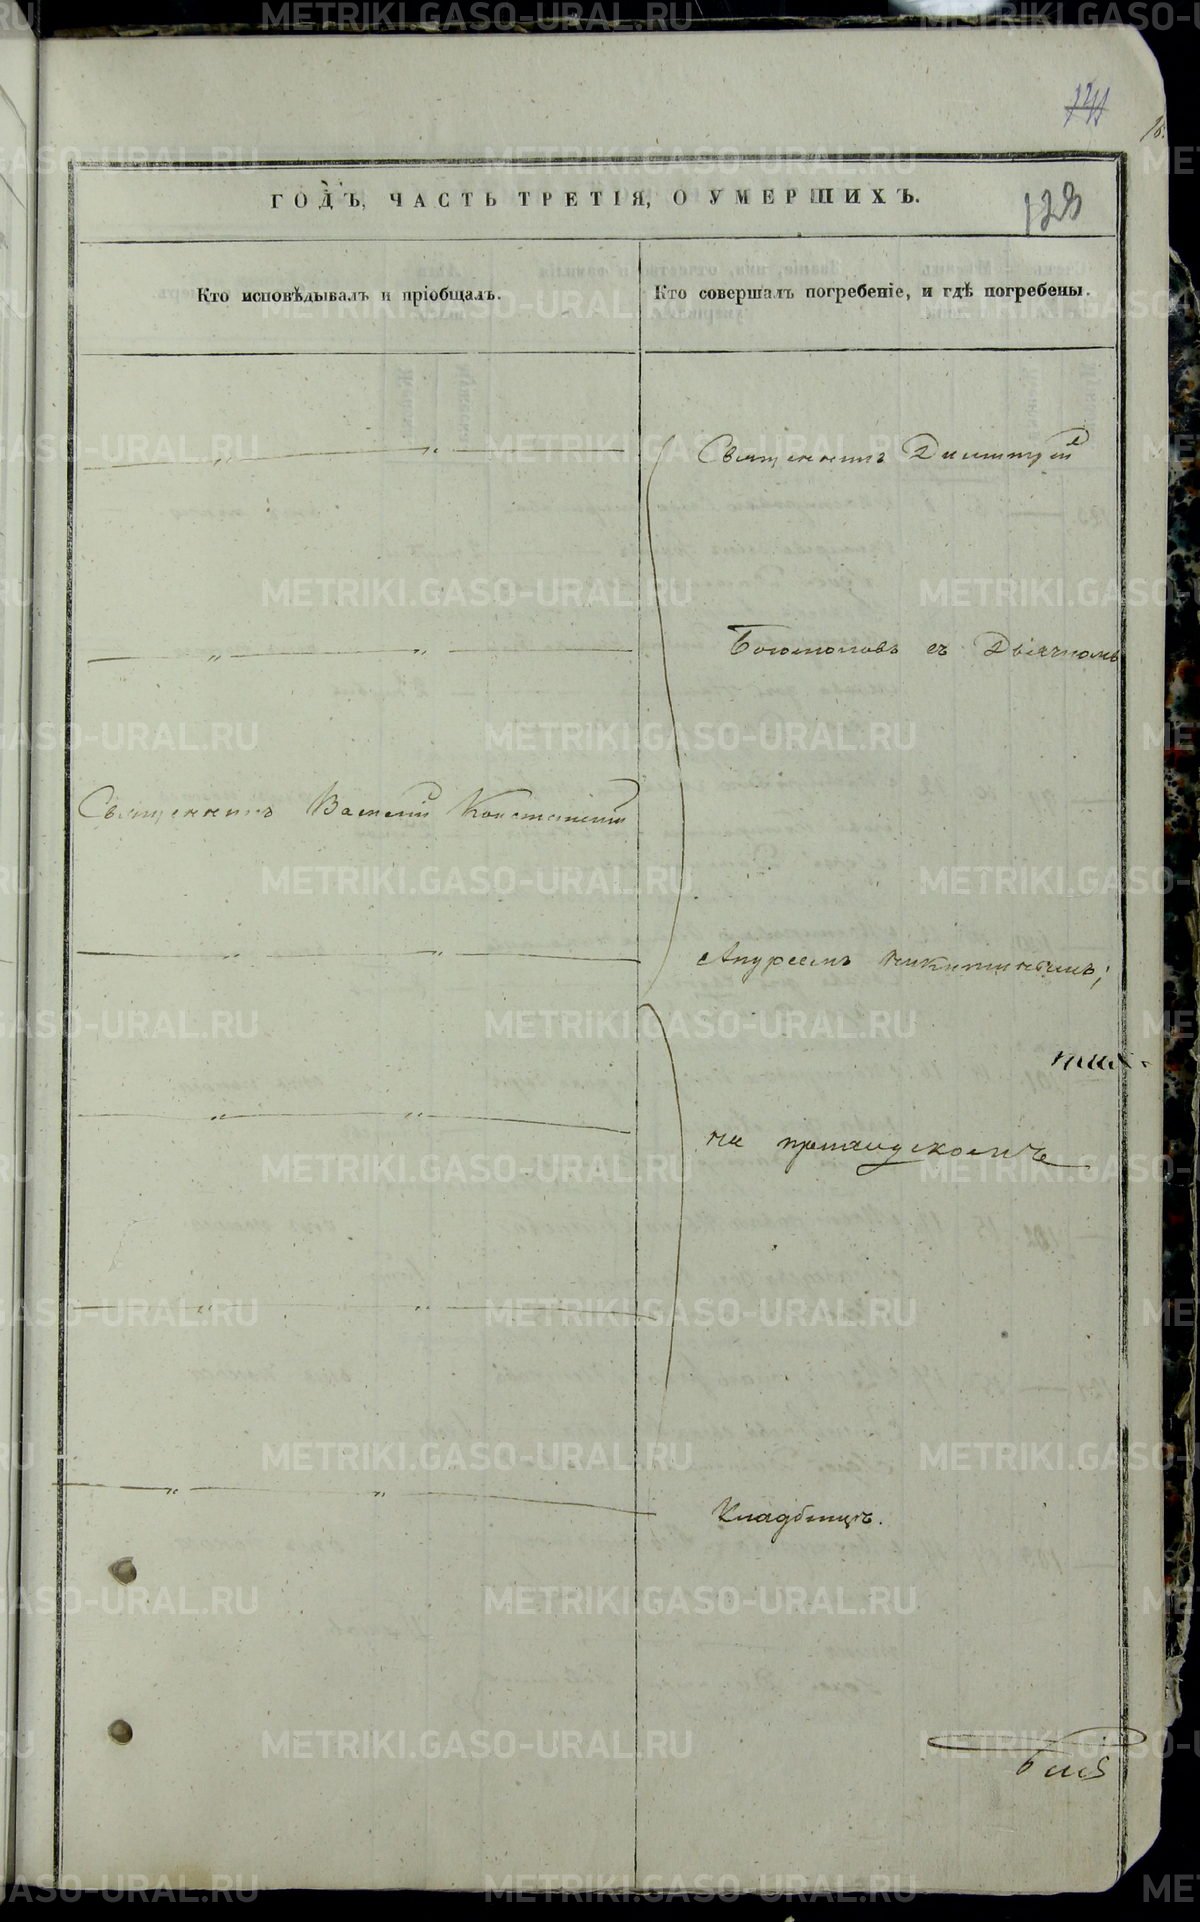 141
ГОДЪ, ЧАСТЬ ТРЕТІЯ, О УМЕРШИХЪ.
123
Кто исповѣдывалъ и пріобщалъ.
Кто совершалъ погребеніе, и гдѣ погребены.
Священникъ Димитрій
Богомоловъ съ Дьячкомъ
Священникъ Василій
Андреемъ Никитинымъ;
на приходскомъ
Кладбищѣ.
METRIKI.GASO-URAL.RU